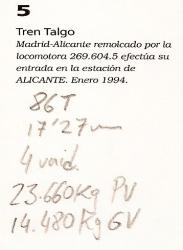 5
Tren Talgo
Madrid-Alicante remolcado por la
locomotora 269.604.5 efectúa su
entrada en la estación de
ALICANTE. Enero 1994.
86T
17'27m
4 unid.
23.660Kg PV
14.480Kg GV